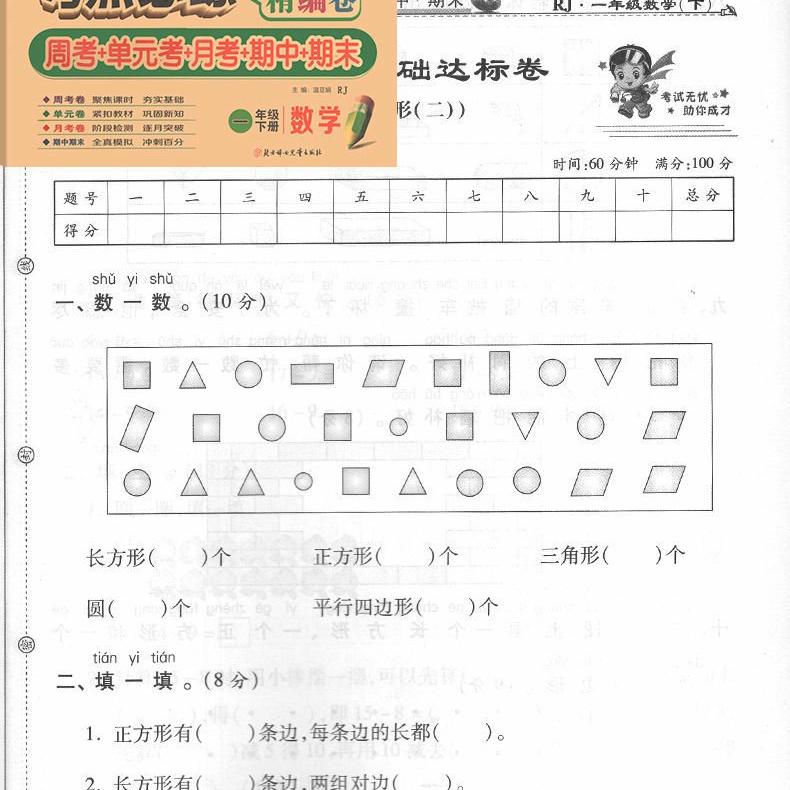 精编卷
周考+单元考+月考+期中+期末
主编:温亚娟 RJ
周考卷 聚焦课时 夯实基础
单元卷 紧扣教材 巩固新知
月考卷 阶段检测 逐月突破
期中期末 全真模拟 冲刺百分
一年级下册 数学
北方妇女儿童出版社
中·期末
RJ·一年级数学(下)
础达标卷
形(二))
考试无忧
助你成才
时间:60分钟 满分:100分
题号 一 二 三 四 五 六 七 八 九 十 总分
得分
线
shǔ yi shǔ
一、数一数。(10分)
封
长方形( )个 正方形( )个 三角形( )个
圆( )个 平行四边形( )个
密
tián yi tián
二、填一填。(8分)
1. 正方形有( )条边,每条边的长都( )。
2. 长方形有( )条边,两组对边( )。